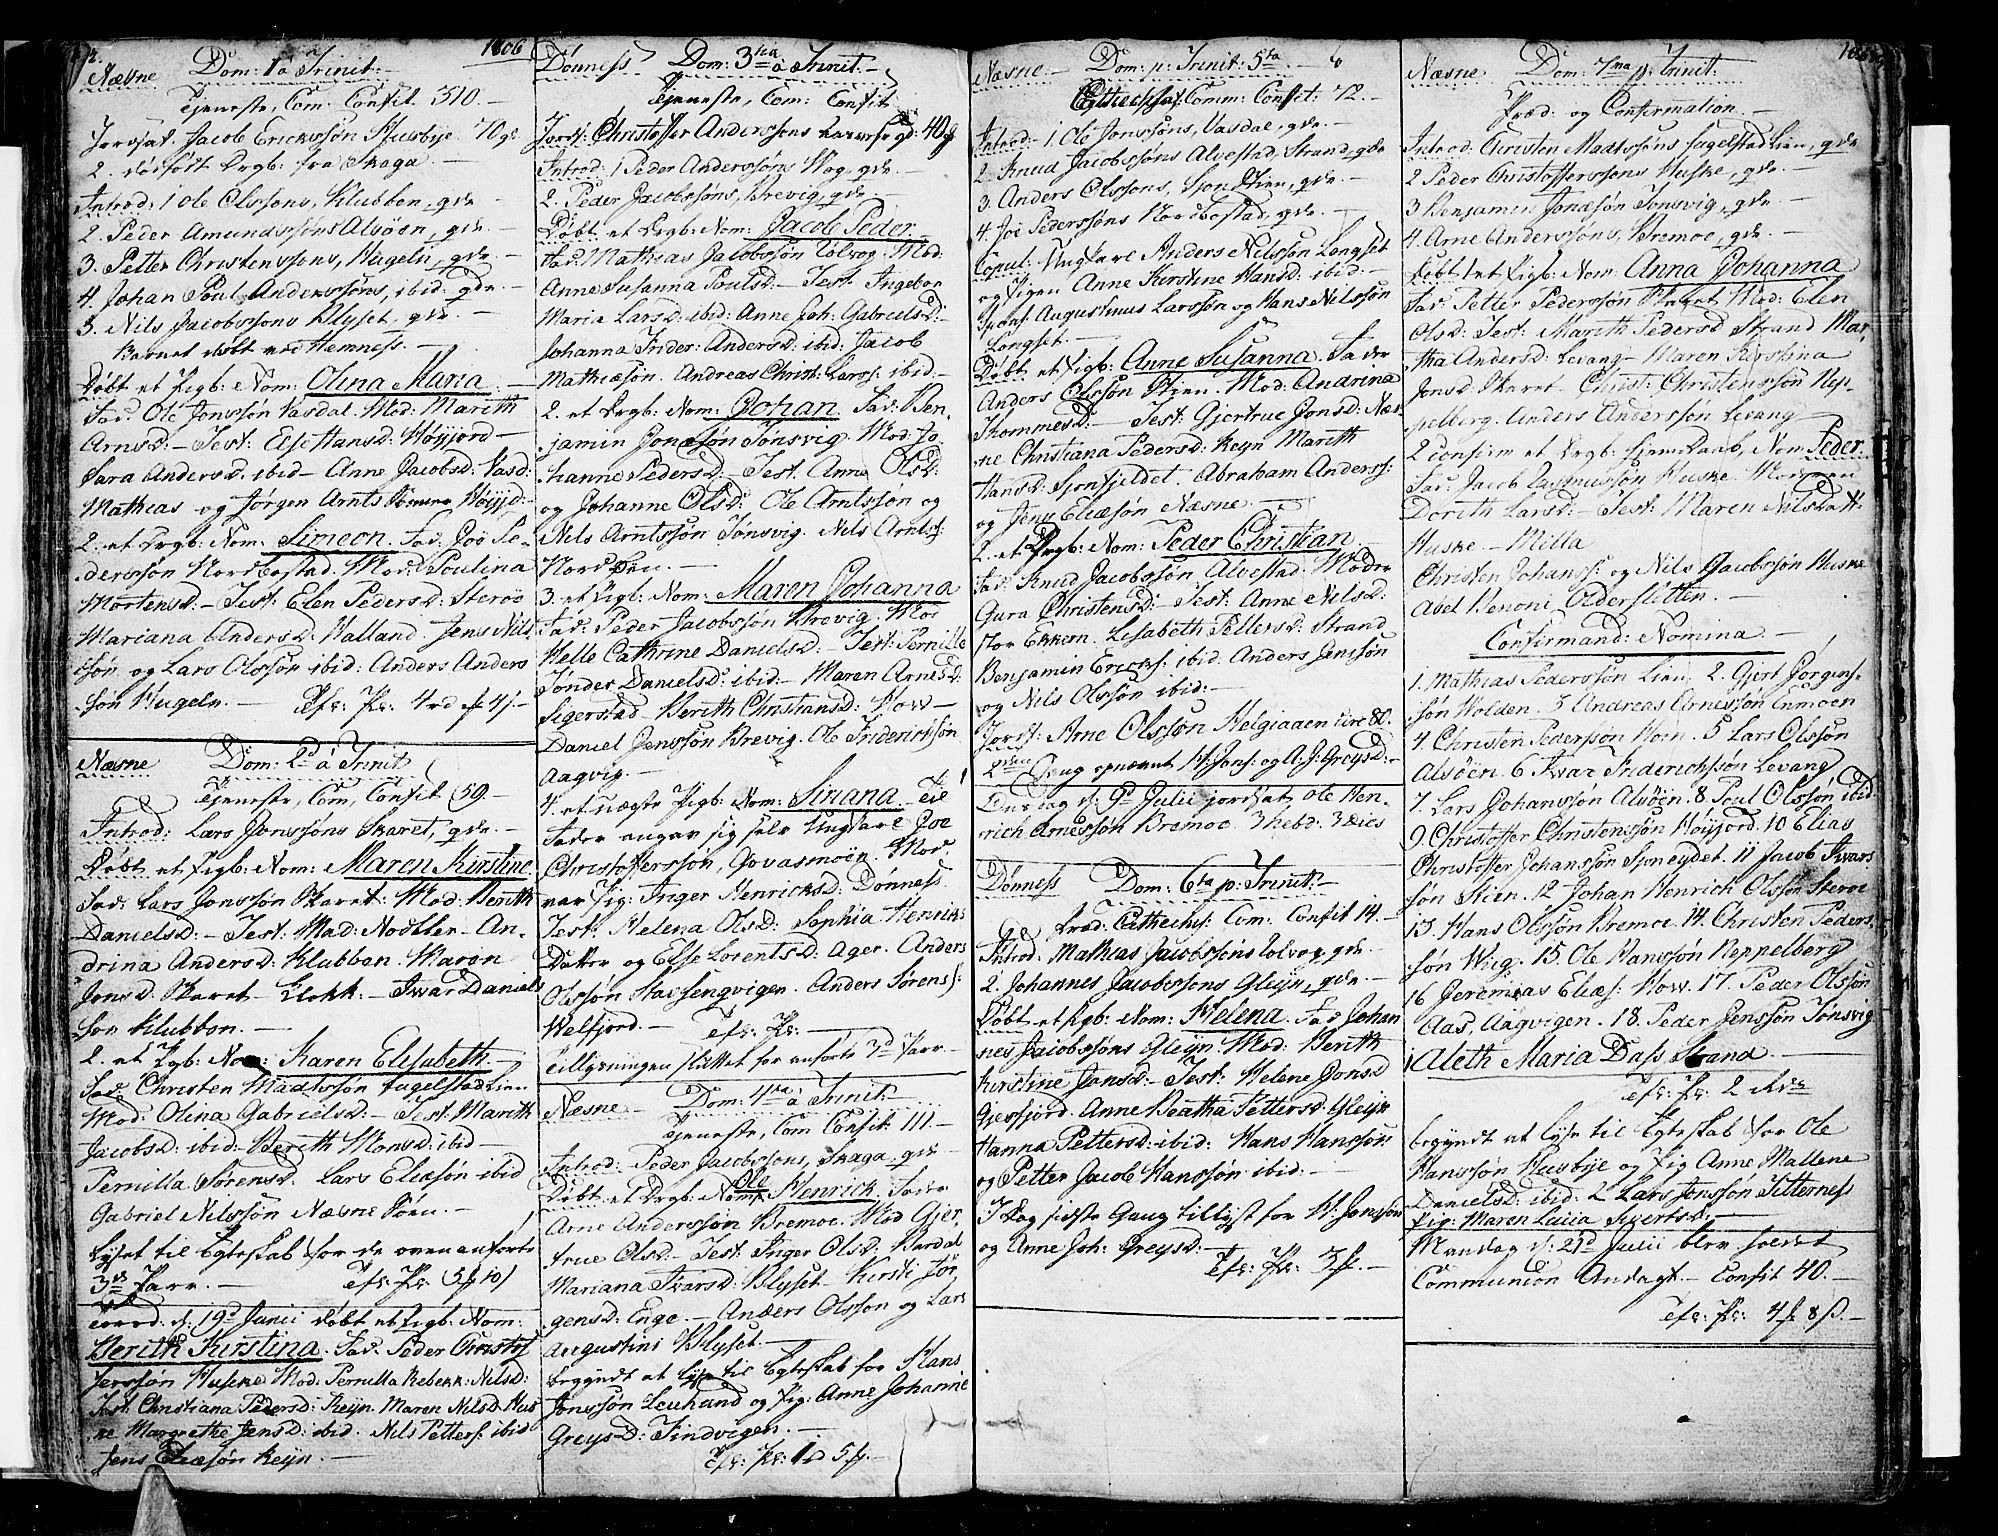 1806
Næsne Dom: 1 a Trinit:
Tjeneste, Com: Confit. 310.
Jordsat. Jacob Erickssøn Husbye 70 gl
2. dødført Drgb: fra Skaga.
Introd: 1 Ole Olssøns, Klubben, qde
2. Peder Amundssøns Alsøen, qde.
3. Petter Christenssøns, Hugeln, qde
4. Johan Poul Anderssøns, ibid: qde.
5. Nils Jacobssøns Klyset, qde.
Barnet døbt ved Hemness.
Døbt et Pigb: Nom: Olina Maria
Fad: Ole Jonssøn Vasdal. Mod: Marith
Arnsd: Test: Else Hansd: Høyjord
Sara Andersd. ibid Anne Jacobsd: Vasd:
Mathias og Jørgen Arnts Høyjd
2. et Drgb: Nom: Simeon. Fad: Joe Pe-
derssøn Nordbostad. Mod: Poulina
Mortensd: Test: Elen Pedersd: Sterøe
Mariana Andersd: Halland. Jens Nils
søn og Lars Olssøn ibid: Anders Anders
søn Hugeln. Tfl: Pl: 4
Næsne Dom: 2d a Trinit
Tjeneste, Com, Confit 59.
Introd: Lars Jonssøns Skaret, qde.
Døbt et Pigb: Nom: Maren Kirstine
Fad: Lars Jonssøn Skaret: Mod: Berith
Danielsd: Test: Mad: Nodtler An-
drina Andersd: Klubben. Maren
Jensd Skaret Klokk: Iwar Daniels
søn Klubben.
2. et Pigb: Nom: Karen Elisabeth
Fad: Christen Madtssøn Fugelstadlien
Mod: Olina Gabrielsd: Test: Marith
Jacobsd: ibid: Berith Monsd: ibid
Pernilla Sørensd. Lars Eliæsøn ibid
Gabriel Nilssøn Næsne Søen.
Lyset til Egteskab for de ovenanførte
3de Parr. Tfl: Pl: 5
d: 19d Junii døbt et Pigb: Nom:
Berith Kirstina. Fad: Peder Christof
ferssøn Huske Mod: Pernilla Rebekk: Nilsd:
Test: Christiana Pedersd: Reyn. Maren Nilsd: Hus
ke Margrethe Jensd: ibid. Nils Petters: ibid
Jens Eliæsøn Reyn.
Dønness Dom: 3tia a Trinit.
Tjeneste, Com: Confit
Jords: Christoffer Anderssøns gl: 40 gl
Introd: 1 Peder Anderssøns Wog, qde.
2. Peder Jacobssøns, Brevig qde
Døbt et Drgb: Nom: Jacob Peder
Fad: Mathias Jacobssøn Tolvog. Mod:
Anne Susanna Poulsd: Test: Ingebor
Maria Larsd: ibid: Anne Joh: Gabrielsd:
Johanna Frider: Andersd: ibid: Jacob
Mathiesøn. Andreas Christ: Larss: ibid:
2. et Drgb: Nom: Johan. Fad: Ben-
jamin Jonæsøn Tonsvig. Mod: Jo-
hanne Pedersd: Test: Anne Olsd:
og Johanne Olsd: Ole Arntssøn og
Nils Arntssøn Tonsvig. Nils Arnts:
Nordøen.
3. et Pigb: Nom: Maren Johanna
Fad: Peder Jacobssøn Brevig. Mod
Helle Cathrine Danielsd: Test: Pernille
Tønder Danielsd: ibid: Maren Arnesd:
Sigerstad Berith Christiansd: How
Daniel Jenssøn Brevig. Ole Friderickssøn
Aagvig.
4. et uægte Pigb: Nom: Sinana. Til
Fader angav sig selv Ungkarl Joe
Christofferssøn, Govasmoen. Mod:
var Pig: Inger Henricksd: Dønness
Test: Helena Olsd: Sophia Henrichs
Datter og Else Lorentsd: Ager. Anders
Olssøn Stavsengvigen. Anders Sørens:
Welfjord. Tfl: Pl:
Tillysningen sluttet for anførte 3d Parr.
Næsne Dom: 4ta a Trinit:
Tjeneste, Com Confit. 111.
Introd: Peder Jacobssøns, Skaga. qde
Døbt et Drgb: Nom: Ole Henrick. Fader
Arne Anderssøn Bremoe. Mod Gjer-
true Olsd: Test: Inger Olsd: Bardal
Mariana Iwarsd: Klyset Kirsti Jør
gensd: Enge Anders Olssøn og Lars
Augustini Klyset.
Begyndt at lyse til Egteskab for Hans
Jonssøn Leuhand og Pig: Anne Johanne
Greysd: Findvigen.
Tfl: Pl: 1d 5
Næsne Dom: p: Trinit: 5ta
Cathechis: Comm: Confit: 72.
Introd: 1. Ole Jonssøns, Vasdal, qde.
2. Knud Jacobssøns Alvestad, Strand, qde
3. Anders Olssøns, Sjonstien, qde.
4. Joe Pederssøns Nordbostad, qde.
Copul: Ungkarl Anders Nilssøn Longset
og Pigen Anne Kirstine Hansd: ibid:
Spons: Augustinus Larssøn og Hans Nilssøn
Longset.
Døbt et Pigb: Anne Susanna. Fader
Anders Olssøn Stien. Mod: Andrina
Thommesd: Test: Gjertrue Jonsd: Næs-
ne Christiana Pedersd: Reyn Marith
Hansd: Sjonfjeldet. Abraham Anderss:
og Jens Eliæsøn Næsne.
2. et Drgb: Nom: Peder Christian.
Fad: Knud Jacobssøn Alvestad. Moder
Gura Christensd: Test: Anne Nilsd:
stor Ekkern. Lisabeth Pettersd: Strand
Benjamin Ericks: ibid: Anders Jenssøn
og Nils Olssøn ibid:
Jords: Arne Olssøn Helgiaaen circ 80.
2den Gang opnævnt H. Jons: og A. J: Greysd:
Onsdag d: 9d Julii jordsat Ole Hen-
rich Arnessøn Bremoe. 3 hebd: 3 dies
Dønness Dom: 6ta p: Trinit:
Præd: Cathechis: Com: Confit 14.
Introd. Mathias Jacobssøns Tolvog, qde.
2. Johannes Jacobssøns Gleyn, qde
Døbt et Pgb: Nom: Helena. Fad Johan
nes Jacobssøns Gleyn Mod: Berith
Kirstine Jonsd: Test: Helene Jonsd
Gjessfjord. Anne Beatha Pettersd: Gleyn
Hanna Pettersd: ibid: Hans Hanssøn
og Petter Jacob Hanssøn ibid:
I Dag sidste Gang tillyst for H: Jonssøn
og Anne Joh: Greysd:
Tfl: Pl: 3
Næsne Dom: 7ma p: Trinit:
Præd: og Confirmation.
Introd: Christen Madtssøns Fugelstadlien, qde
2 Peder Christofferssøns Huske, qde.
3 Benjamin Jonæsøn Tonsvig, qde.
4. Arne Anderssøns, Bremoe, qde.
Døbt 1 et Pigb: Nom: Anna Johanna
Fad: Petter Pederssøn Skaret Mod: Elen
Olsd: Test: Marith Pedersd Strand Mar-
tha Andersd: Levang Maren Kirstina
Jonsd Skaret Christ: Christenssøn Nep-
pelberg. Anders Anderssøn Levang
2 confirm et Drgb: hjemdaab, Nom Peder.
Fad: Jacob Rasmussøn Huske. Moderen
Dorith Larsd: Test: Maren Nilsdatt:
Huske Milla
Christen Johanss: og Nils Jacobssøn Husne
Abel Benoni Oldersletten.
Confirmand: Nomina.
1. Mathias Pederssøn Lien, 2. Gjert Jørgens-
søn Wolden. 3 Andreas Arnessøn Inmoen
4. Christen Pederssøn Horn. 5 Lars Olssøn
Alsøen. 6 Iwar Friderickssøn Levang
7. Lars Johanssøn Alsøen. 8. Poul Olssøn ibid
9. Christoffer Christenssøn Høyjord. 10 Elias
Christoffer Johanssøn Sjoneydet. 11 Jacob Iwars
søn Stien. 12 Johan Henrich Olssøn Sterøe
13. Hans Olssøn Bremoe. 14. Christen Peders-
søn Wiig. 15. Ole Hanssøn Neppelberg
16 Jeremias Eliæs: How. 17. Peder Olssøn
Aas, Aagvigen. 18. Peder Jenssøn Tonsvig
1 Aleth Maria Dass Strand
Tfl: Pl: 2
Begyndt at lyse til Egteskab for Ole
Hanssøn Husbye og Pig Anne Mallene
Danielsd: ibid: 2 Lars Jonssøn Titterness
Pig: Maren Lucia Sivertsd:
Mandag d: 21d Julii blev holdet
Communion Andagt. Confit 40.
Tfl: Pl: 4 8 ß.